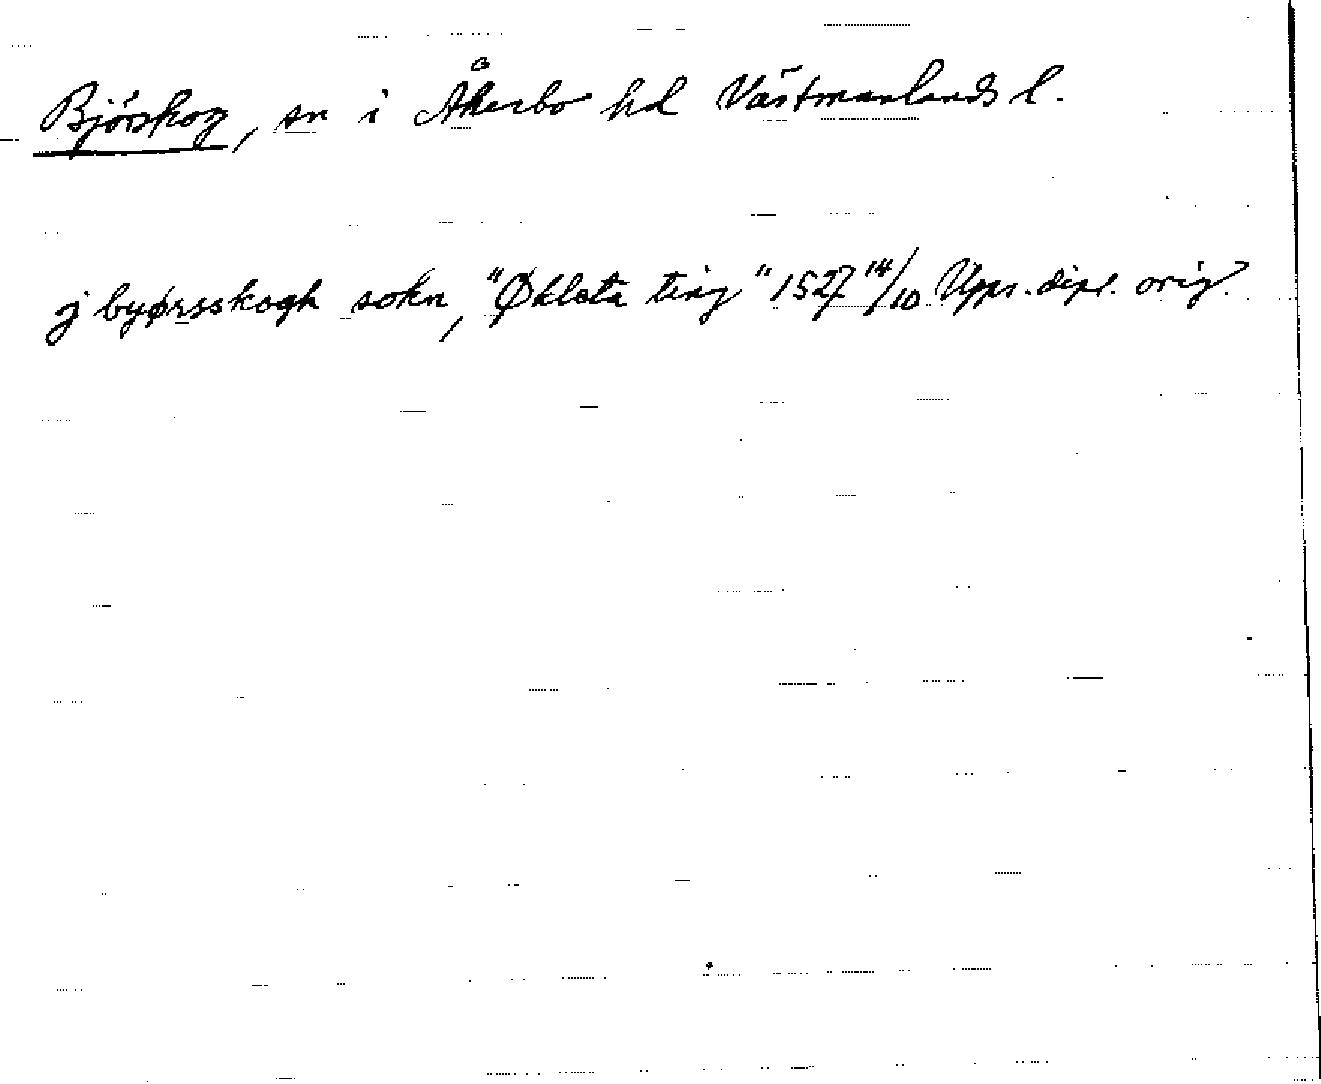 Björskog, sn i Åkerbo hd Västmanlands l.
j byørsskogh sokn, "Økleta ting" 1527 14/10 Upps. dipl. orig.